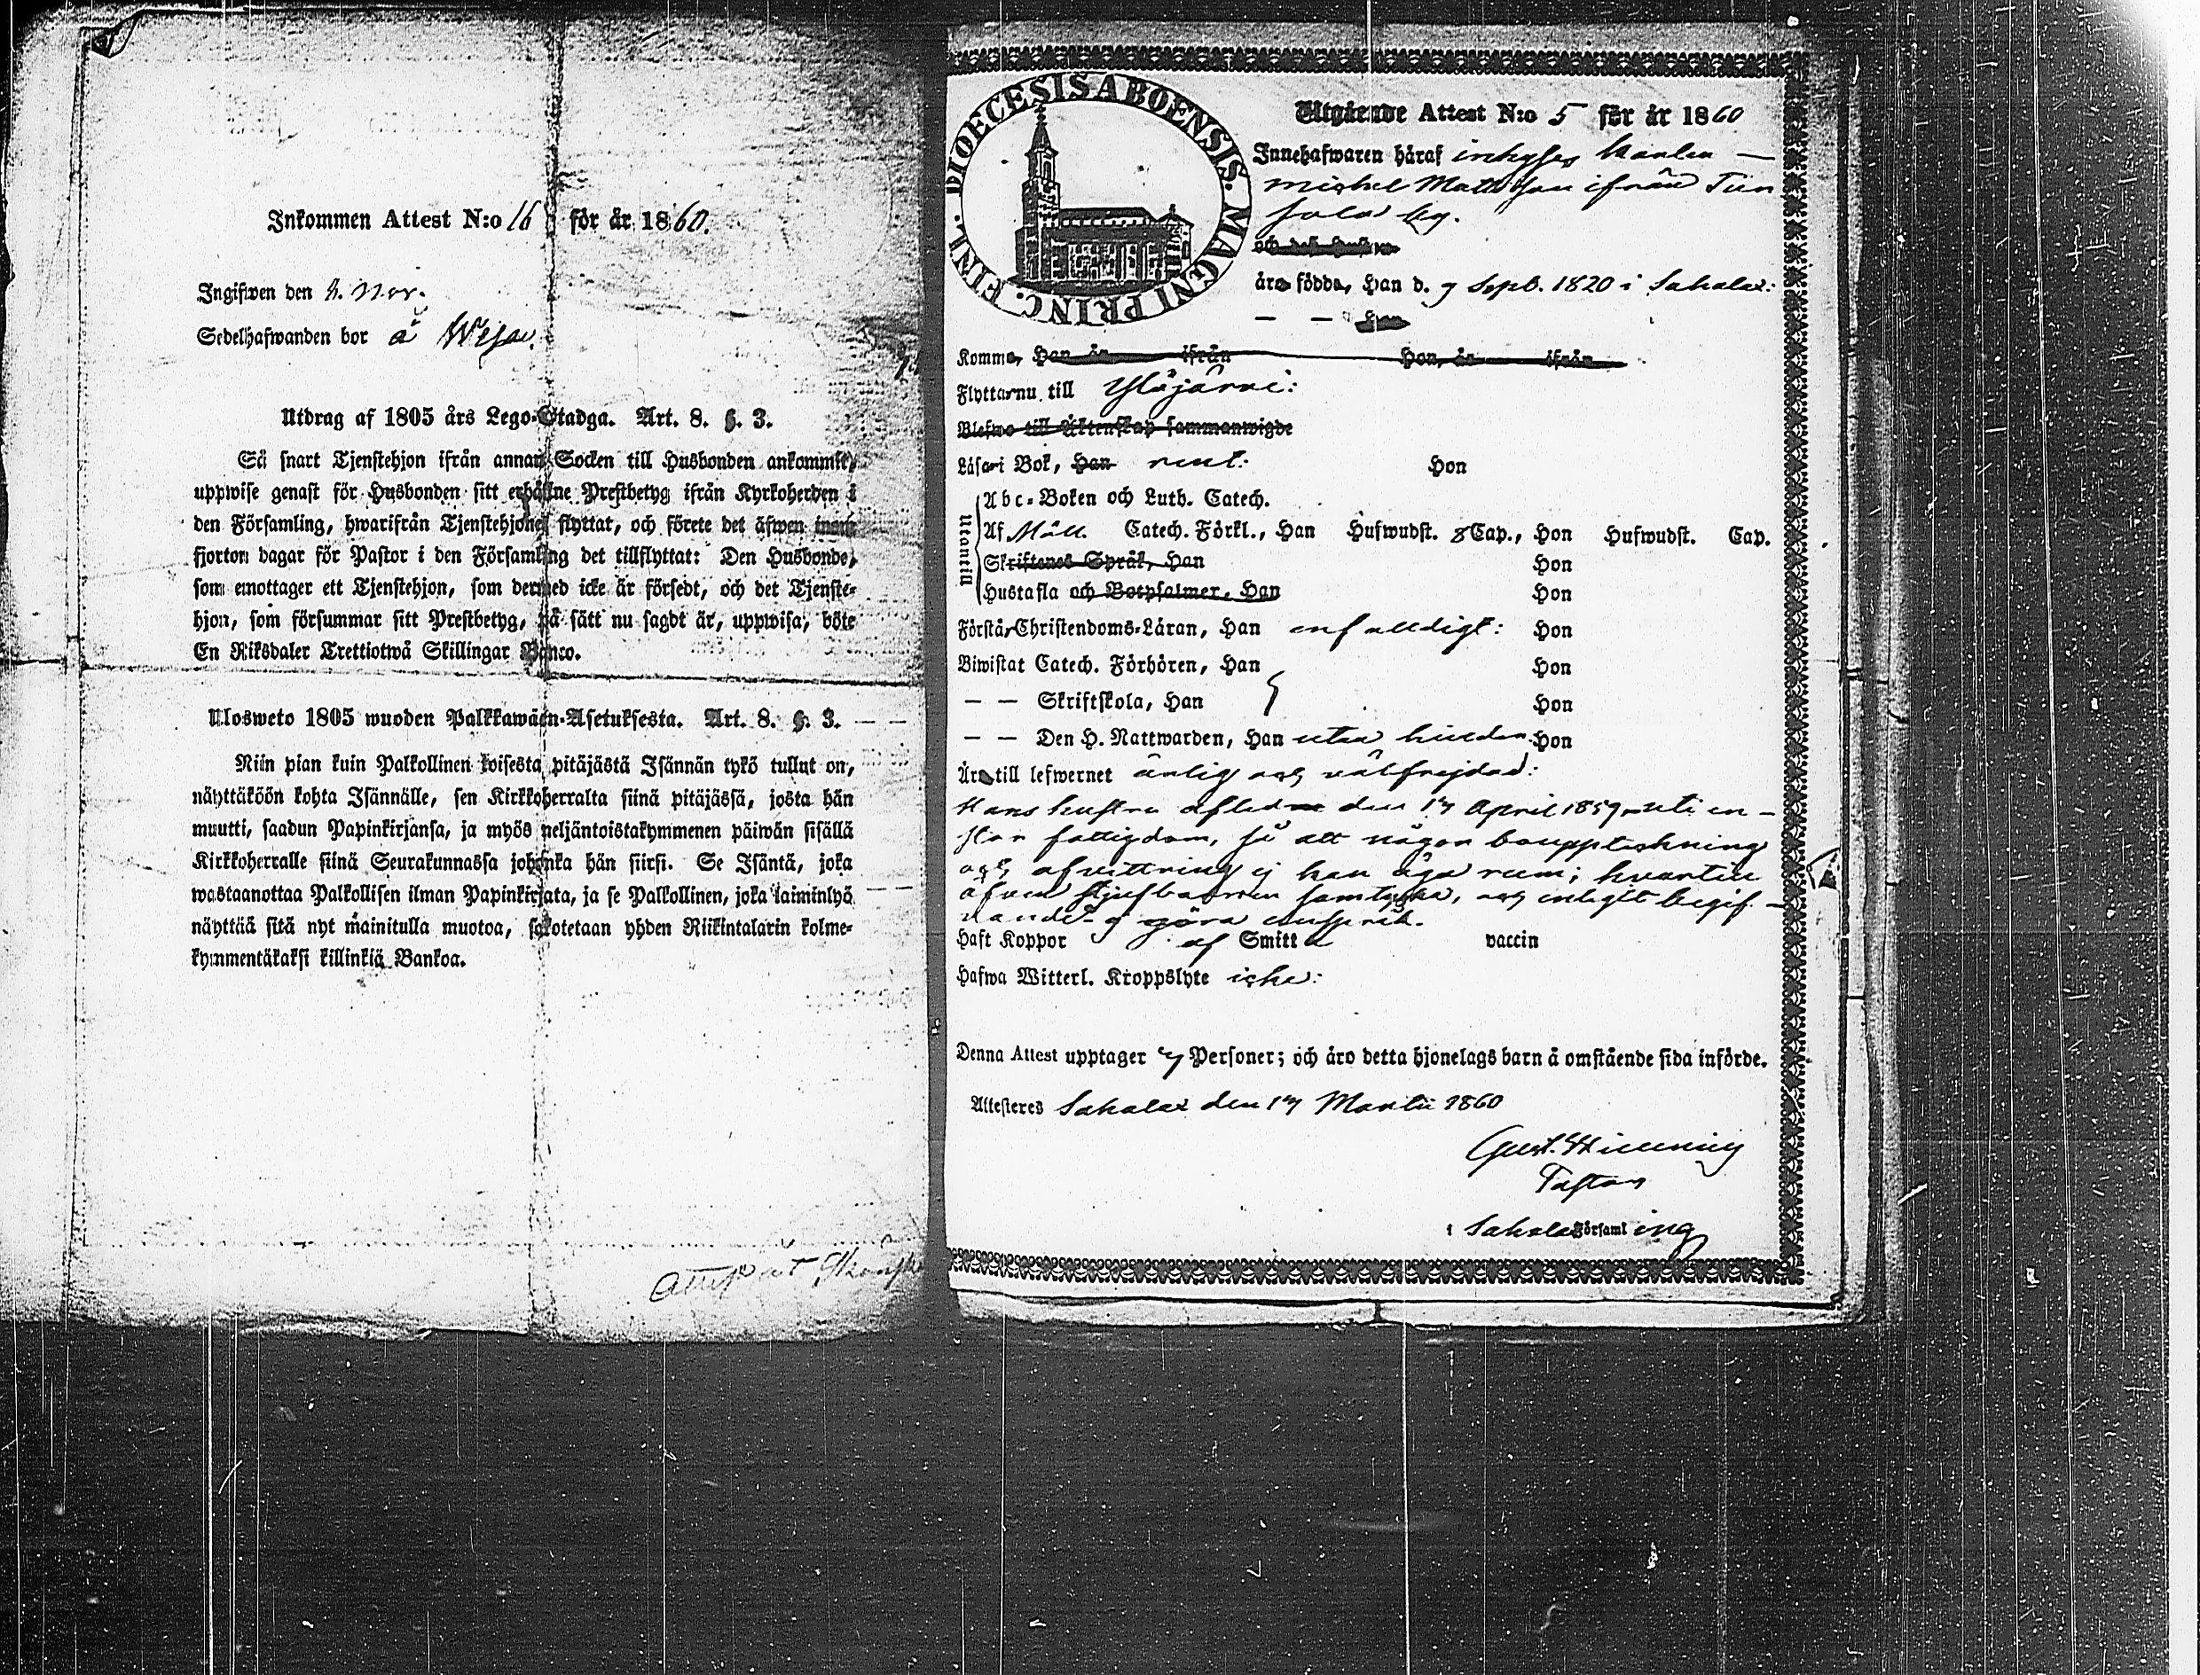 Inkommen Attest N:o 16 för år 1860.
Ingifwen den 2. Nov.
Sedelhafwanden bor å
Utdrag af 1805 års Lego-Stadga. Art. 8. §. 3.
Så snart Tjenstehjon ifrån annan Socken till Husbonden ankommit,
uppwise genast för Husbonden sitt erhållne Prestbetyg ifrån Kyrkoherden i
den Församling, hwarifrån Tjenstehjonet flyttat, och förete det äfwen inom
fjorton dagar för Pastor i den Församling det tillflyttat: Den Husbonde,
som emottager ett Tjenstehjon, som dermed icke är försedt, och det Tjenste-
hjon, som försummar sitt Prestbetyg, på sätt nu sagdt är, uppwisa, böte
En Riksdaler Trettiotwå Skillingar Banco.
Ulosweto 1805 wuoden Palkkawäen-Asetuksesta. Art. 8. §. 3.
Niin pian kuin Palkollinen toisesta pitäjästä Isännän tykö tullut on,
näyttäköön kohta Isännälle, sen Kirkkoherralta siinä pitäjässä, josta hän
muutti, saadun Papinkirjansa, ja myös neljäntoistakymmenen päiwän sisällä
Kirkkoherralle siinä Seurakunnassa johonka hän siirsi. Se Isäntä, joka
wastaanottaa Palkollisen ilman Papinkirjata, ja se Palkollinen, joka laiminlyö
näyttää sitä nyt mainitulla muotoa, sakotetaan yhden Riikintalarin kolme-
kymmentäkaksi killinkiä Bankoa.
DIOECESIS ABOENSIS. MAGNI PRINC. FINL.
Utgående Attest N:o 5 för år 1860
Innehafwaren häraf inhyses karlen —
Michel Mattsson ifrån
by.
och dess hustru
äro födde, Han d. 9 Sept. 1820 i Sahalax:
— — Hon
Komme, Han år ifrån Hon, år ifrån
Flyttar nu till Ylöjärvi:
Blefwo till Äktenskap sammanwigde
Läsa i Bok, Han rent: Hon
Utantill
Abc-Boken och Luth. Catech.
Af Möll. Catech. Förkl., Han Hufwudst. 8 Cap., Hon Hufwudst. Cap.
Skriftenes Språk, Han Hon
Hustafla och Botpsalmer, Han Hon
Förstår Christendoms-Läran, Han enfaldigt: Hon
Biwistat Catech. Förhören, Han Hon
— — Skriftskola, Han Hon
— — Den H. Nattwarden, Han utan hinder Hon
Äro till lefwernet ärlig och välfrejdad:
Hans hustru afled den 17 April 1859 uti en -
stor fattigdom, så att någon bouppteckning
och afvittring ej kan äga rum; hvartill
äfven samtycka, och enligt begif -
vandet ej göra anspråk.
Haft Koppor af Smitta vaccin
Hafwa Witterl. Kroppslyte icke:
Denna Attest upptager 7 Personer; och äro detta hjonelags barn å omstående sida införde.
Attesteres Sahalax den 17 Martii 1860
Gust.
Pastor
i Sahalax Församling